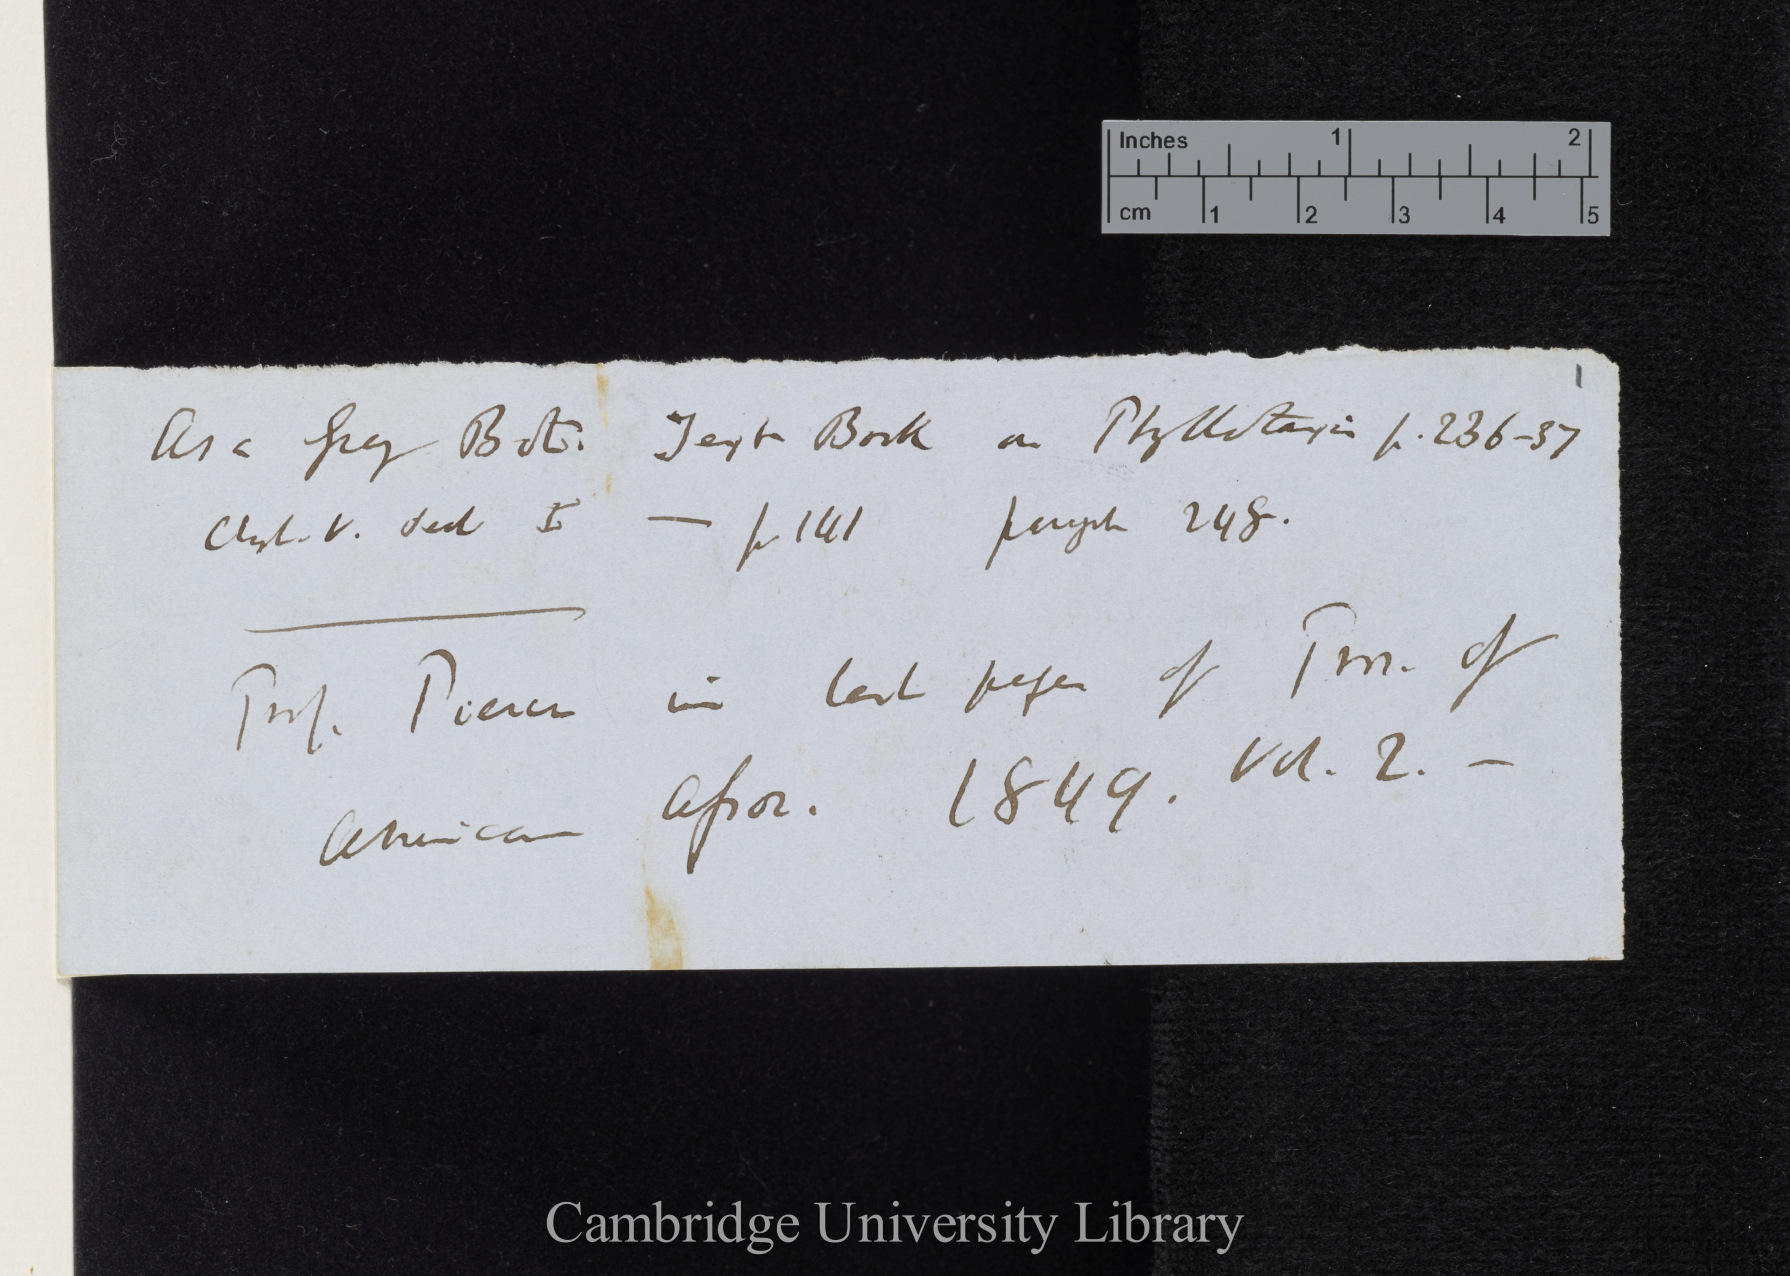 Inches 1 2
cm 1 2 3 4 5
1
Asa Gray Bot. Text Book on Phyllotaxis p. 236-37
Chapt. V. Sect I — p 141 paragh 248.
Prof. Pierce in last pages of Proc. of
American Assoc. 1849. Vol. 2. —
Cambridge University Library